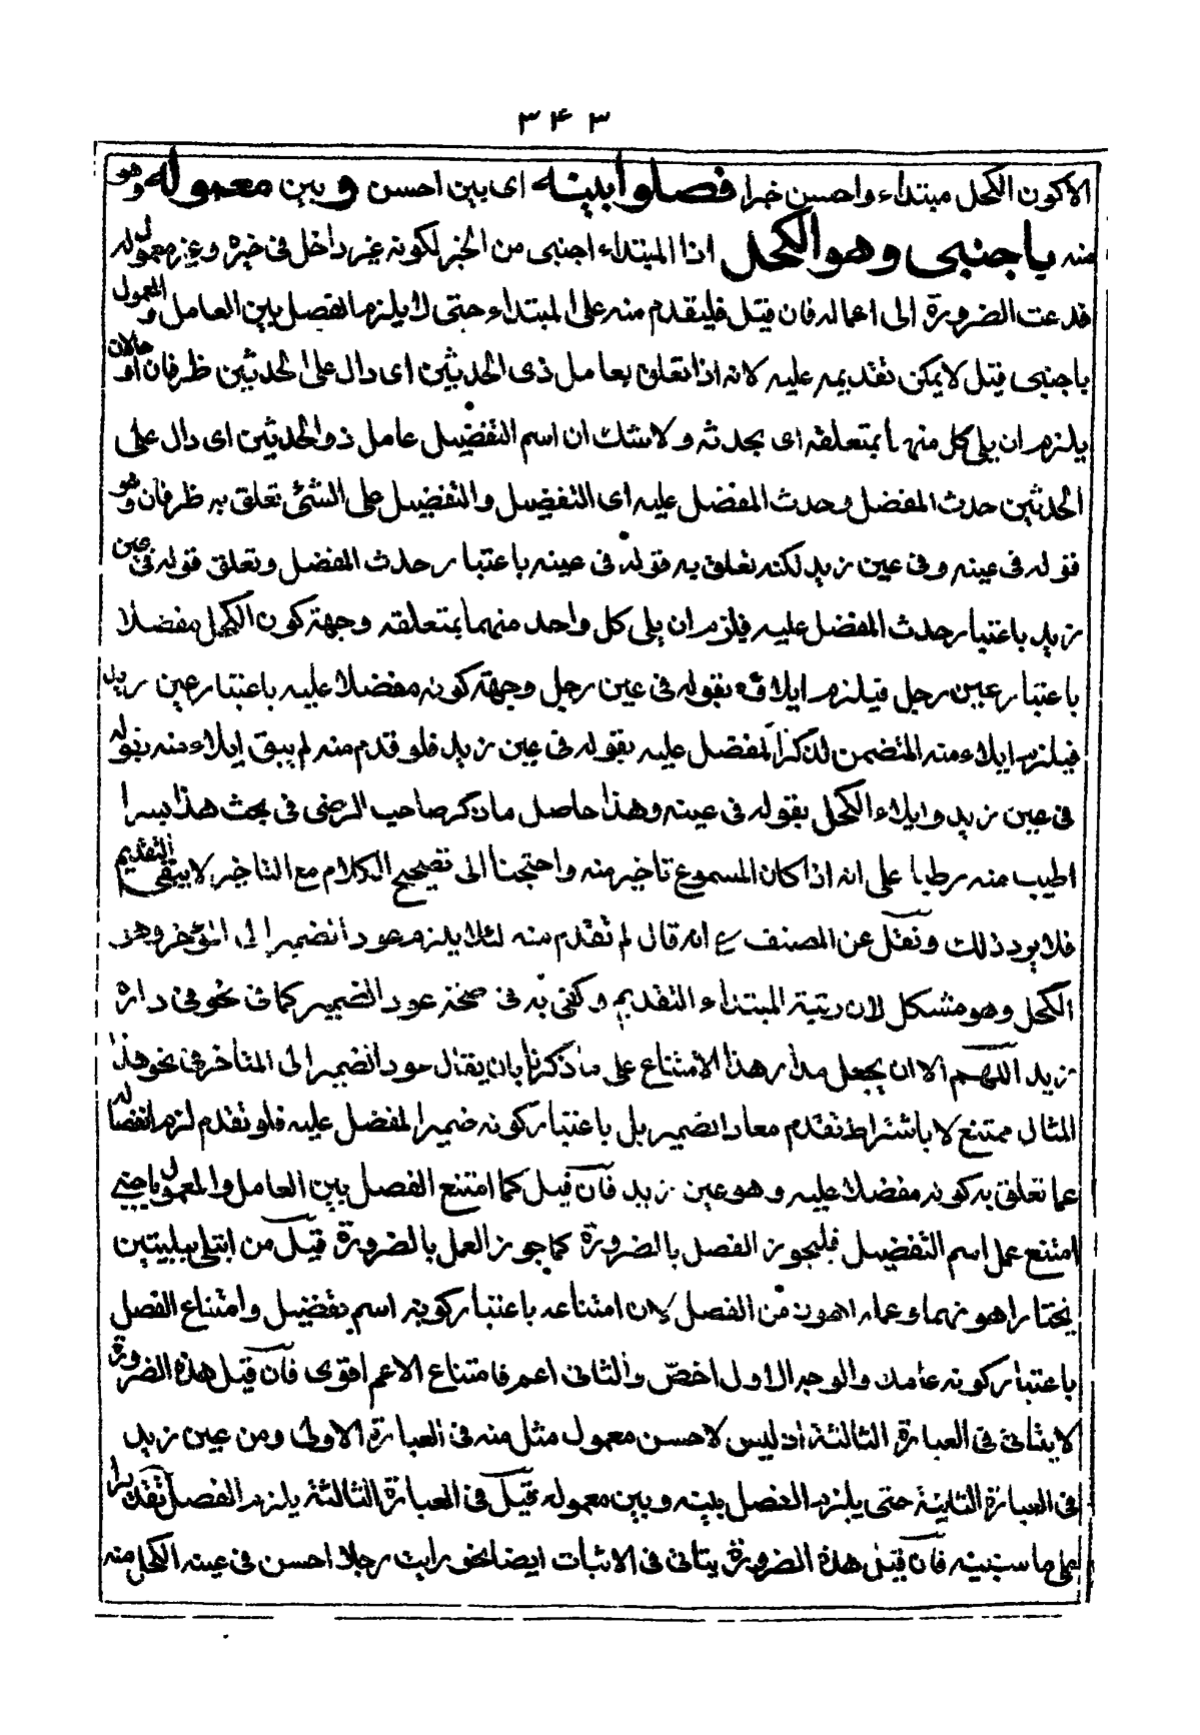 ۳۴۳
الا كون الكحل مبتداء واحسن خبرا فصلوا بينه اى بين احسن و بين معموله وهو
منه باجنبى وهو الكحل اذا المبتداء اجنبى من الخبر لكونه غير داخل فى خبره وغير معمول له
فدعت الضرورة الى اعماله فان قيل فليتقدم منه على المبتداء حتى لا يلزم الفصل بين العامل و المعمول
باجنبى قيل لا يمكن تقديمه عليه لانه اذا تعلق بعامل ذى الحدثين اى دال على الحدثين ظرفان او حالان
يلزم ان يلى كل منهما بمتعلقه اى بحدثه ولا شك ان اسم التفضيل عامل ذو الحدثين اى دال على
الحدثين حدث المفضل وحدث المفضل عليه اى التفضيل والتفضيل على الشئ تعلق به ظرفان وهو
قوله فى عينه وفى عين زيد لكنه تعلق به قوله فى عينه باعتبار حدث المفضل وتعلق قوله فى عين
زيد باعتبار حدث المفضل عليه فيلزم ان يلى كل واحد منهما بمتعلقه وجهة كون الكحل مفضلا
باعتبار عين رجل فيلزم ايلاؤه بقوله فى عين رجل وجهة كونه مفضلا عليه باعتبار عين زيد
فيلزم ايلاء منه المتضمن لذكر المفضل عليه بقوله فى عين زيد فلو قدم منه لم يبق ايلاء منه بقوله
فى عين زيد وايلاء الكحل بقوله فى عينه وهذا حاصل ما ذكر صاحب الرضى فى بحث هذا بسرا
اطيب منه رطبا على انه اذا كان المسموع تاخير منه واحتجنا الى تصحيح الكلام مع التاخير لا يبقى التقديم
فلا يرد ذلك ونقل عن المصنف انه قال لم تقدم منه لئلا يلزم عود الضمير الى المؤخر وهو
الكحل وهو مشكل لان رتبة المبتداء التقديم وكفى به فى صحة عود الضمير كما فى نحو فى داره
زيد اللهم الا ان يجعل مدار هذا الامتناع على ما ذكرنا بان يقال عود الضمير الى المتاخر فى نحو هذا
المثال ممتنع لا باشتراط تقدم معاد الضمير بل باعتبار كونه ضمير المفضل عليه فلو تقدم لزم انفصاله
عما تعلق به كونه مفضلا عليه وهو عين زيد فان قيل كما امتنع الفصل بين العامل والمعمول باجنبى
امتنع عمل اسم التفضيل فليجوز الفصل بالضرورة كما جوز العمل بالضرورة قيل من ابتلى ببليتين
يختار اهونهما وعمله اهون من الفصل لان امتناعه باعتبار كونه اسم تفضيل وامتناع الفصل
باعتبار كونه عاملا والوجه الاول اخص والثانى اعم فامتناع الاعم اقوى فان قيل هذه الضرورة
لا يتاتى فى العبارة الثالثة اذ ليس لاحسن معمول مثل منه فى العبارة الاولى ومن عين زيد
فى العبارة الثانية حتى يلزم الفصل بينه وبين معموله قيل فى العبارة الثالثة يلزم الفصل تقديرا
على ما سنبينه فان قيل هذه الضرورة يتاتى فى الاثبات ايضا نحو رايت رجلا احسن فى عينه الكحل منه